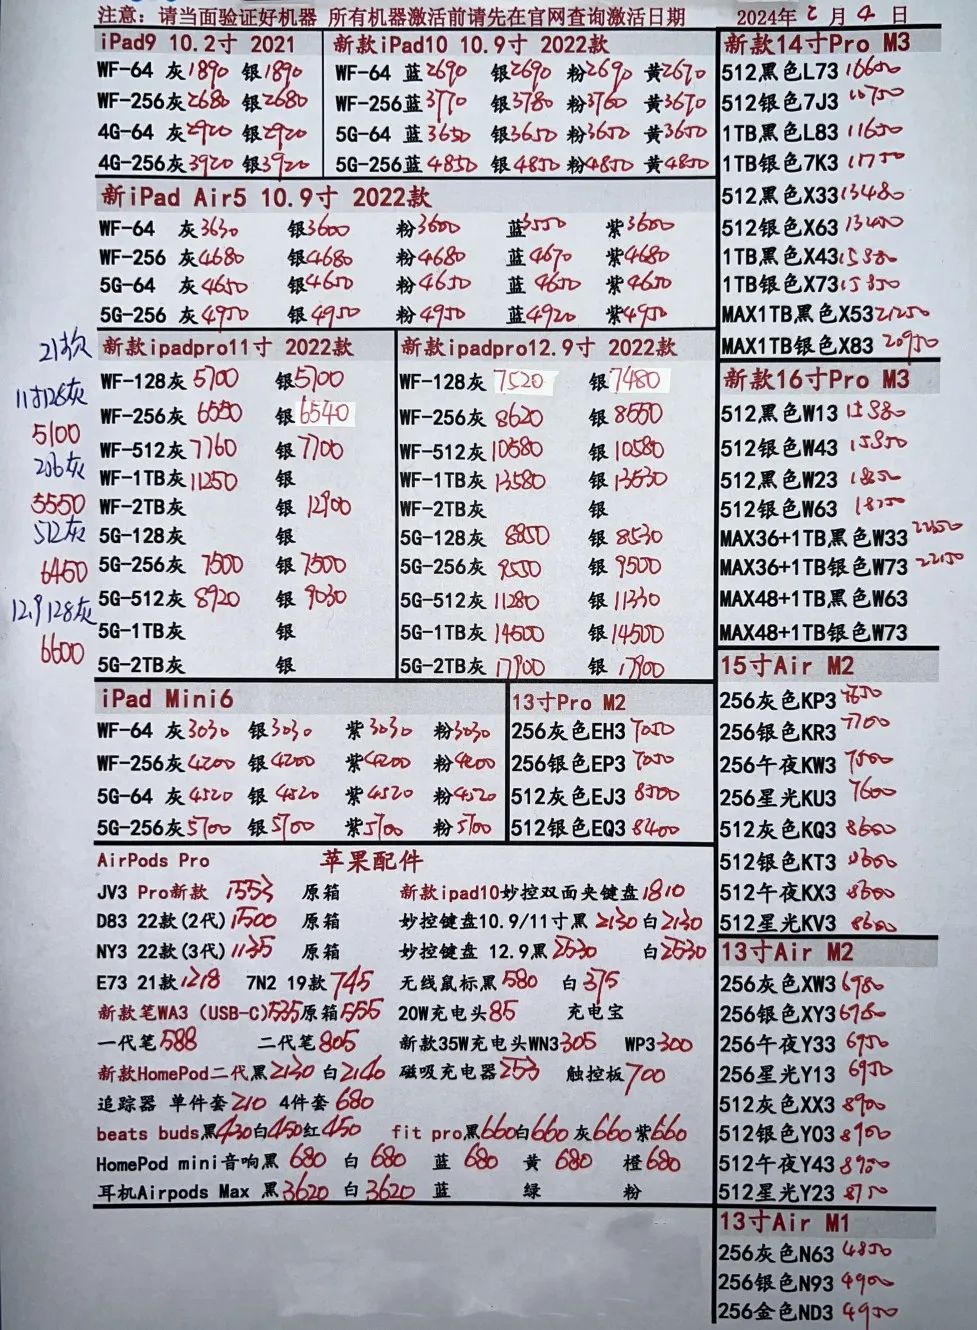 注意：请当面验证好机器 所有机器激活前请先在官网查询激活日期 2024年2月4日
iPad9 10.2寸 2021
WF-64 灰1890 银1890
WF-256灰2680 银2680
4G-64 灰2920 银2920
4G-256灰3920 银3920
新款iPad10 10.9寸 2022款
WF-64 蓝2690 银2690 粉2690 黄2670
WF-256蓝3770 银3780 粉3760 黄3670
5G-64 蓝3650 银3650 粉3650 黄3650
5G-256蓝4850 银4850 粉4850 黄4850
新iPad Air5 10.9寸 2022款
WF-64 灰3630 银3600 粉3600 蓝3550 紫3600
WF-256 灰4680 银4680 粉4680 蓝4670 紫4680
5G-64 灰4650 银4650 粉4650 蓝4650 紫4650
5G-256 灰4950 银4950 粉4950 蓝4920 紫4950
21款
11寸128灰
5100
256灰
5550
512灰
6450
12.9 128灰
6600
新款ipadpro11寸 2022款
WF-128灰 5700 银5700
WF-256灰 6550 银6540
WF-512灰 7760 银7700
WF-1TB灰 11250 银
WF-2TB灰 银 12900
5G-128灰 银
5G-256灰 7500 银 7500
5G-512灰 8920 银 9030
5G-1TB灰 银
5G-2TB灰 银
新款ipadpro12.9寸 2022款
WF-128灰 7520 银7480
WF-256灰 8620 银 8550
WF-512灰10580 银10580
WF-1TB灰13580 银13530
WF-2TB灰 银
5G-128灰 8850 银 8530
5G-256灰 9550 银 9500
5G-512灰 11280 银 11330
5G-1TB灰 14500 银 14500
5G-2TB灰 17900 银 17900
iPad Mini6
WF-64 灰3030 银3030 紫3030 粉3030
WF-256灰4200 银4200 紫4200 粉4200
5G-64 灰4520 银4520 紫4520 粉4520
5G-256灰5700 银5700 紫5700 粉5700
13寸Pro M2
256灰色EH3 7050
256银色EP3 7050
512灰色EJ3
512银色EQ3 8400
AirPods Pro 苹果配件
JV3 Pro新款 1553 原箱 新款ipad10妙控双面夹键盘1810
D83 22款(2代)1500 原箱 妙控键盘10.9/11寸黑 2130 白2130
NY3 22款(3代)1135 原箱 妙控键盘 12.9黑2530 白2530
E73 21款1218 7N2 19款745 无线鼠标黑580 白375
新款笔WA3 (USB-C)535原箱555 20W充电头85 充电宝
一代笔588 二代笔805 新款35W充电头WN3305 WP3300
新款HomePod二代黑2130 白2140 磁吸充电器253 触控板700
追踪器 单件套210 4件套680
beats buds黑430白450红450 fit pro黑660白660 灰660紫660
HomePod mini音响黑 680 白 680 蓝 680 黄 680 橙680
耳机Airpods Max 黑3620 白3620 蓝 绿 粉
新款14寸Pro M3
512黑色L73
512银色7J3
1TB黑色L83 11650
1TB银色7K3 11750
512黑色X33 13480
512银色X63
1TB黑色X43
1TB银色X73
MAX1TB黑色X53 21250
MAX1TB银色X83 20950
新款16寸Pro M3
512黑色W13
512银色W43
512黑色W23
512银色W63
MAX36+1TB黑色W33
MAX36+1TB银色W73 22150
MAX48+1TB黑色W63
MAX48+1TB银色W73
15寸Air M2
256灰色KP3
256银色KR3 7700
256午夜KW3 7500
256星光KU3 7600
512灰色KQ3 8600
512银色KT3
512午夜KX3 8600
512星光KV3 8600
13寸Air M2
256灰色XW3 6980
256银色XY3
256午夜Y33 6950
256星光Y13 6950
512灰色XX3 8900
512银色Y03 8900
512午夜Y43
512星光Y23 8750
13寸Air M1
256灰色N63 4850
256银色N93 4900
256金色ND3 4950